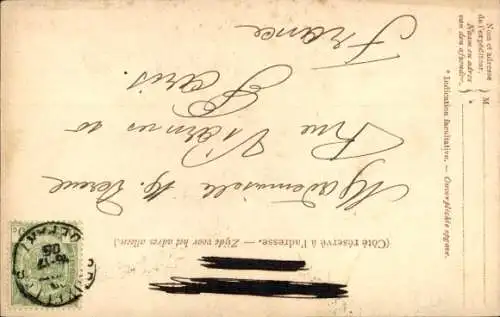 (Côté réservé à l'adresse. — Zijde voor het adres alleen.)
Mademoiselle
Rue Viarmes 10
Paris.
France
Nom et adresse
de l'expéditeur.
Naam en adres
van den afzender.
M
* Indication facultative. — Onverplichte opgave.